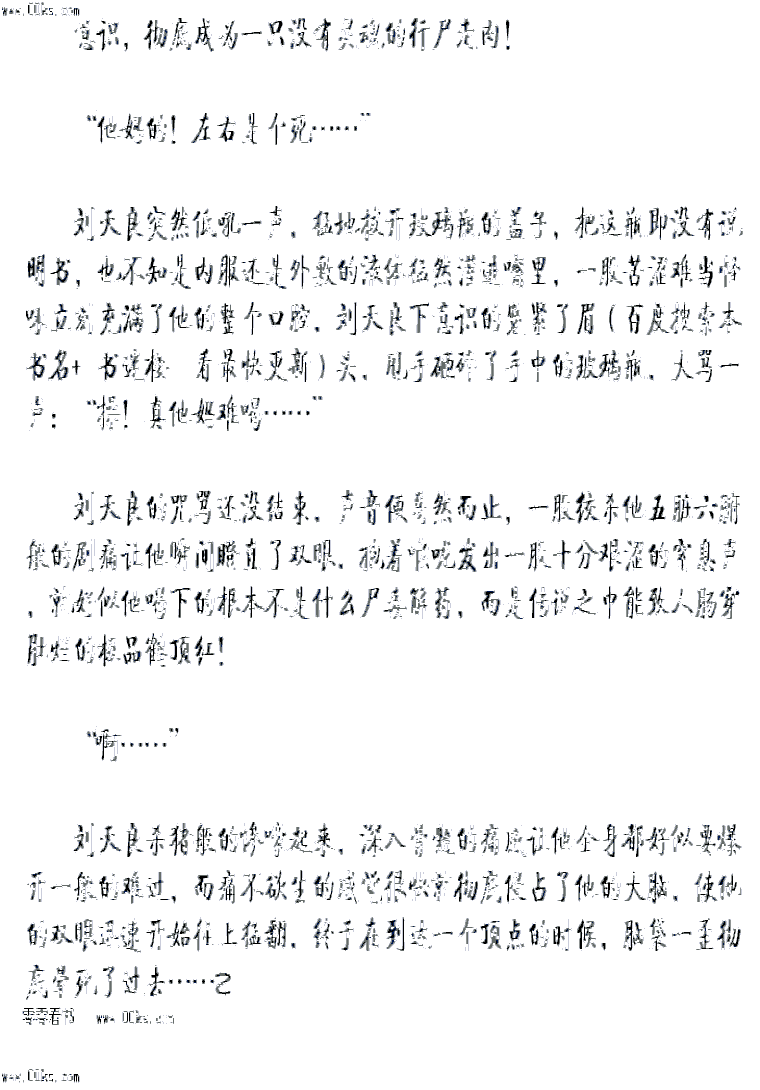 www.00ks.com
意识，彻底成为一只没有灵魂的行尸走肉！
“他妈的！左右是个死……”
刘天良突然低吼一声，猛地拔开玻璃瓶的盖子，把这瓶即没有说
明书，也不知是内服还是外敷的液体猛然灌进嘴里，一股苦涩难当怪
味立刻充满了他的整个口腔，刘天良下意识的蹙紧了眉（百度搜索本
书名+ 书迷楼 看最快更新）头，甩手砸碎了手中的玻璃瓶，大骂一
声：“操！真他妈难喝……”
刘天良的咒骂还没结束，声音便戛然而止，一股绞杀他五脏六腑
般的剧痛让他瞬间瞪直了双眼，掐着喉咙发出一股十分艰涩的窒息声
，就好似他喝下的根本不是什么尸毒解药，而是传说之中能致人肠穿
肚烂的极品鹤顶红！
“啊……”
刘天良杀猪般的惨嚎起来，深入骨髓的痛庋让他全身都好似要爆
开一般的难过，而痛不欲生的感觉很快就彻底侵占了他的大脑，使他
的双眼迅速开始往上猛翻，终于在到达一个顶点的时候，脑袋一歪彻
底晕死了过去……乙
零零看书 www.00ks.com
www.00ks.com